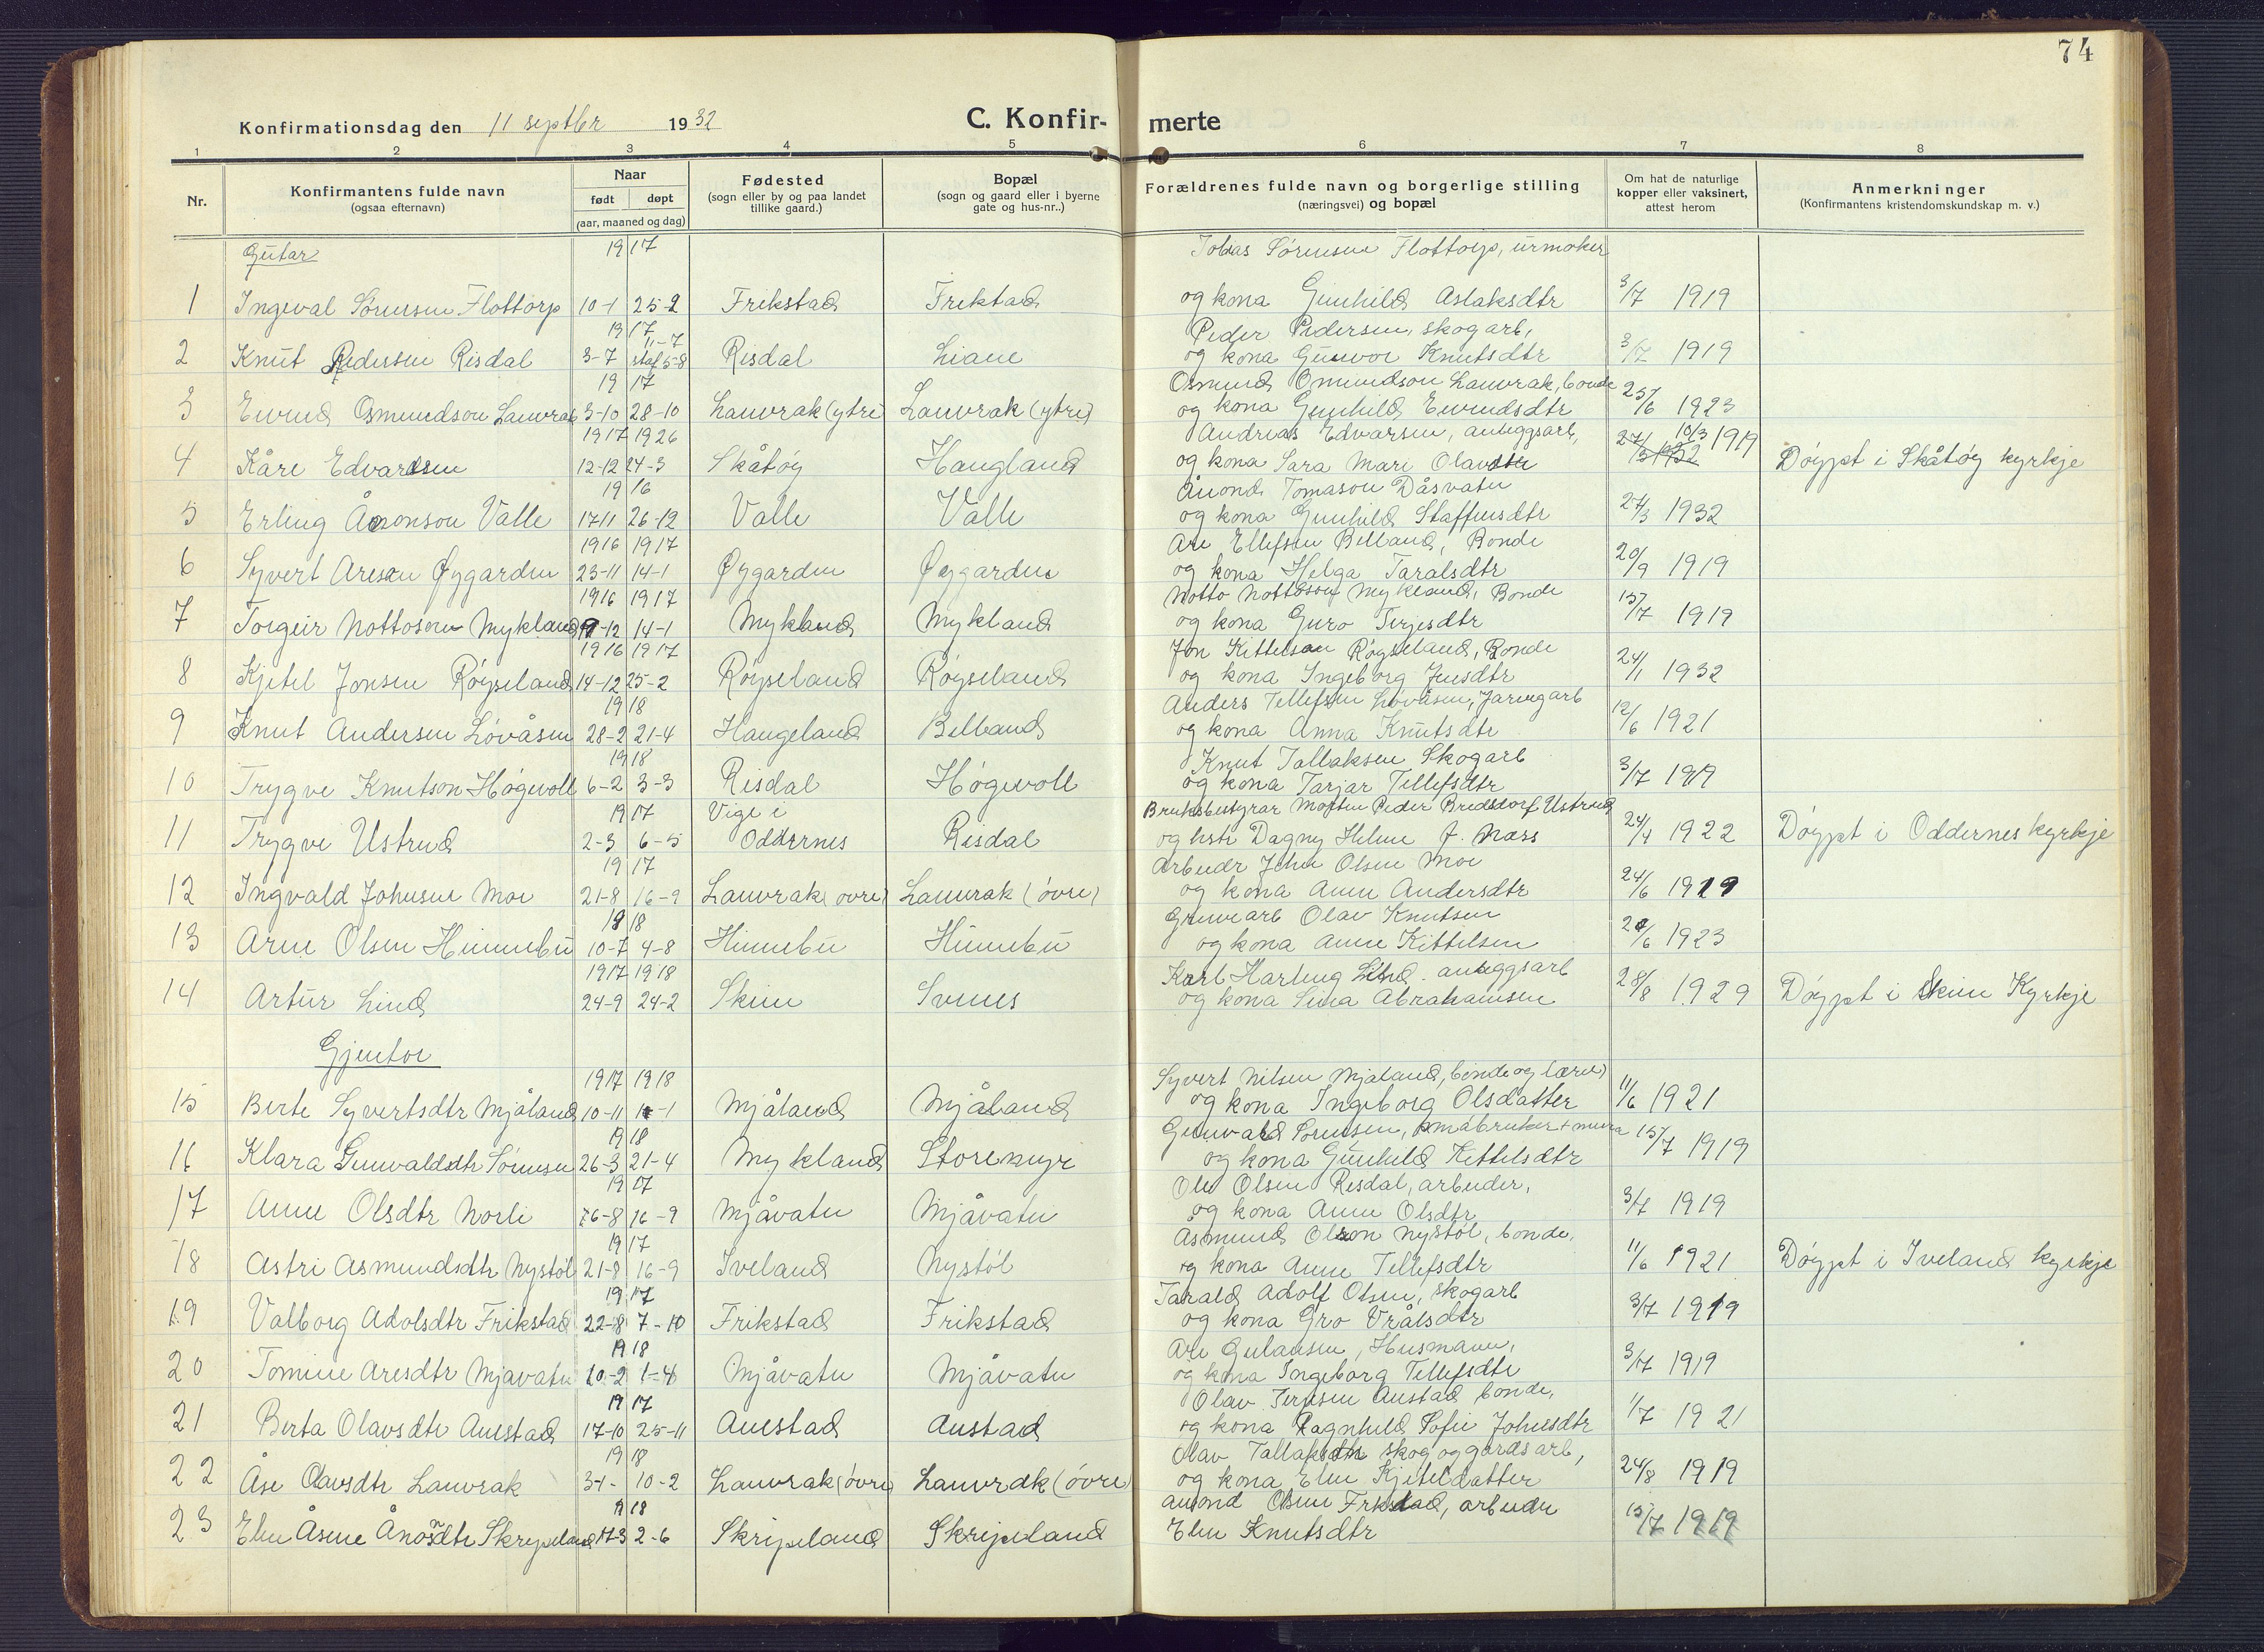 74
Konfirmationsdag den 11 septbr 1932
C. Konfirmerte
1 2 3 4 5 6 7 8
Nr.
Konfirmantens fulde navn (ogsaa efternavn)
Naar født døpt (aar, maaned og dag)
Fødested (sogn eller by og paa landet tillike gaard.)
Bopæl (sogn og gaard eller i byerne gate og hus-nr..)
Forældrenes fulde navn og borgerlige stilling (næringsvei) og bopæl
Om hat de naturlige kopper eller vaksinert, attest herom
Anmerkninger (Konfirmantens kristendomskundskap m. v.)
Gutar
1917 Tobias Sørensen Flottorp, urmaker
1 Ingeval Sørensen Flottorp 10-1 25-2 Frikstad Friktad og kona Gunhild Aslaksdtr 3/7 1919
1917 11-7 Peder Pedersen, skogarb,
2 Knut Pedersen Risdal 3-7 staf 5-8 Risdal Liane og kona Gunvor Knutsdtr 3/7 1919
1917 Osmund Omundson Lauvrak, bonde
3 Eivind Osmundson Lauvrak 3-10 28-10 Lauvrak (ytre) Lauvrak (ytre) og kona Gunhild Eivindsdtr 25/6 1923
1917 1926 Andreas Edvarsen, anleggsarb, 10/3 1919
4 Kåre Edvardsen 12-12 24-3 Skåtøy Haugland og kona Sara Mari Olavdtr 27/3 1932 Døypt i Skåtøy kyrkje
1916 Ånond Tomason Dåsvatn
5 Erling Ånonson Valle 17-11 26-12 Valle Valle og kona Gunhild Staffensdtr 27/3 1932
1916 1917 Are Ellefsen Belland, Bonde
6 Syvert Aresen Øygarden 23-11 14-1 Øygarden Øygarden og kona Helga Taralsdtr 20/9 1919
1916 1917 Notto Nottoson Mykland, Bonde
7 Torgeir Nottoson Mykland 9-12 14-1 Mykland Mykland og kona Guro Terjesdtr 15/7 1919
1916 1917 Jon Kittelsen Røyseland, Bonde
8 Kjetel Jonsen Røyseland 14-12 25-2 Røyseland Røyseland og kona Ingeborg Jensdtr 24/1 1932
1918 Anders Tellefsen Løvåsen, Jarnvgarb
9 Knut Andersen Løvåsen 28-2 21-4 Haugeland Belland og kona Anna Knutsdtr 12/6 1921
1918 Knut Tallaksen Skogarb
10 Trygve Knutson Høgevoll 6-2 3-3 Risdal Høgevoll og kona Tarjar Tellefsdtr 3/7 1919
1917 Vige i Bruksbestyrar Morten Peder Bredsdorf Ustrud
11 Trygve Ustrud 2-3 6-5 Oddernes Risdal og hstr Dagny Helene f. Næss 24/4 1922 Døypt i Oddernes kyrkje
1917 Arbeidr John Olsen Moe
12 Ingvald Johnsen Moe 21-8 16-9 Lauvrak (øvre) Lauvrak (øvre) og kona Anne Andersdtr 24/6 1919
1918 Gruvearb Olav Knutsen
13 Arne Olsen Hinnebu 10-7 4-8 Hinnebu Hinnebu og kona Anne Kittilsen 24/6 1923
1917 1918 Karl Harling Lind anleggsarb
14 Artur Lind 24-9 24-2 Skien Svenes og kona Sina Abrahamsen 28/8 1929 Døypt i Skien Kyrkje
Gjentor
1917 1918 Syvert Nilsen Mjåland, bonde og lærer
15 Berte Syvertsdtr Mjåland 10-11 1-1 Mjåland Mjåland og kona Ingeborg Olsdatter 11/6 1921
1918 Gunvald Sørensen, småbruker + murar
16 Klara Gunvaldsdtr Sørensen 26-3 21-4 Mykland Storemyr og kona Gunhild Kittelsdtr 15/7 1919
1917 Ole Olsen Risdal, arbeider,
17 Anne Olsdtr Norli 26-8 16-9 Mjåvatn Mjåvatn og kona Anne Olsdtr 3/7 1919
1917 Asmund Olson Nystøl, bonde,
18 Astri Asmundsdtr Nystøl 21-8 16-9 Iveland Nystøl og kona Anne Tellefsdtr 11/6 1921 Døypt i Iveland kyrkje
1917 Tarald Adolf Olsen, skogarb
19 Valborg Adolsdtr Frikstad 22-8 7-10 Frikstad Frikstad og kona Gro Vrålsdtr 3/7 1919
1918 Are Gulaksen, Husmann,
20 Tomine Aresdtr Mjåvatn 10-2 1-4 Mjåvatn Mjåvatn og kona Ingeborg Tellefsdtr 3/7 1919
1917 Olav Terjesen Austad, bonde,
21 Berta Olavsdtr Austad 17-10 25-11 Austad Austad og kona Ragnhild Sofie Johnsdtr 1/7 1921
1918 Olav Tallaksdtr skog og gardsarb,
22 Åse Olavsdtr Lauvrak 3-1- 10-2 Lauvrak (øvre) Lauvrak (øvre) og kona Elen Kjeteldatter 24/8 1919
1918 Anond Olsen Frikstad, arbeider
23 Elen Åsene Ånonsdtr Skripeland 17-3 2-6 Skripeland Skripeland Elen Knutsdtr 15/7 1919